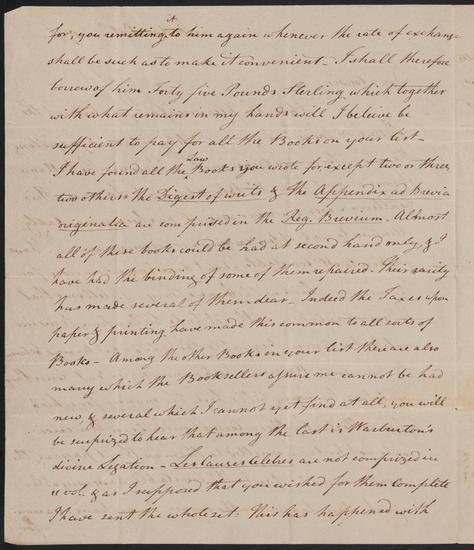 for; you remitting it to him again whenever the rate of exchange
shall be such as to make it convenient - I shall therefore
borrow of him Forty five Pounds Sterling which together
with what remains in my hands will I beleive be
sufficient to pay for all the Books on your list -
I have found all the Law Books you wrote for, except two or three,
two others the Digest of writs & the Appendix ad Brevia
originalia are comprised in the Reg. Brevium. Almost
all of these books could be had at second hand only, & I
have had the binding of some of them repaired - Their rarity
has made several of them dear. Indeed the Taxes upon
paper & printing have made this common to all sorts of
Books - Among the other Books in your list there are also
many which the Booksellers assure me cannot be had
new, & several which I cannot yet find at all, you will
be surprized to hear that among the last is Warburton's
divine Legation - Les Causes Celebres are not comprized in
11 vol. & as I supposed that you wished for them complete
I have sent the whole set. This has happened with